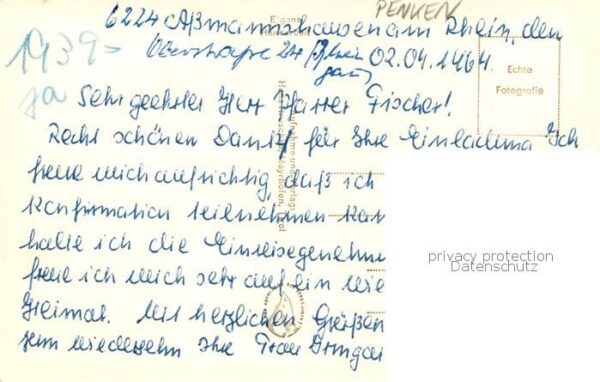 PENKEN
6224 Aßmannshausen am Rhein, den
Oberstraße 24 (Rheingau) 02.04.1964.
1939-
ja
Echte
Fotografie
Sehr geehrter Herr Pfarrer Fischer!
Recht schönen Dank für Ihre Einladung Ich
freue mich aufrichtig, daß ich
Konfirmation teilnehmen kan
halte ich die Einreisegenehm
freue ich mich sehr auf ein Wie
Heimat. Mit herzlichen Grüßen
zum Wiedersehn Ihre Frau Irmgar
privacy protection
Datenschutz